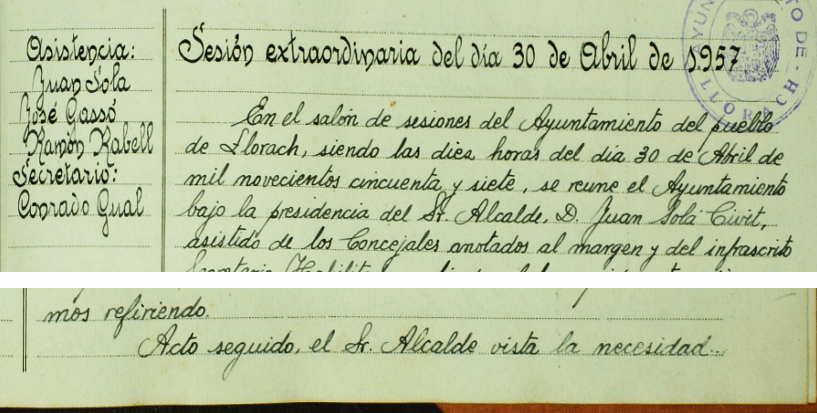 Asistencia:
Juan Sola
José Gassó
Ramón Rabell
Secretario:
Conrado Gual
Sesión extraordinaria del día 30 de Abril de 1957
AYUN TO DE - LLORACH
En el salón de sesiones del Ayuntamiento del pueblo
de Llorach, siendo las diez horas del día 30 de Abril de
mil novecientos cincuenta y siete, se reune el Ayuntamiento
bajo la presidencia del Sr. Alcalde, D. Juan Solá Civit,
asistido de los Concejales anotados al margen y del infrascrito
Secretario
mos refiriendo.
Acto seguido, el Sr. Alcalde vista la necesidad...